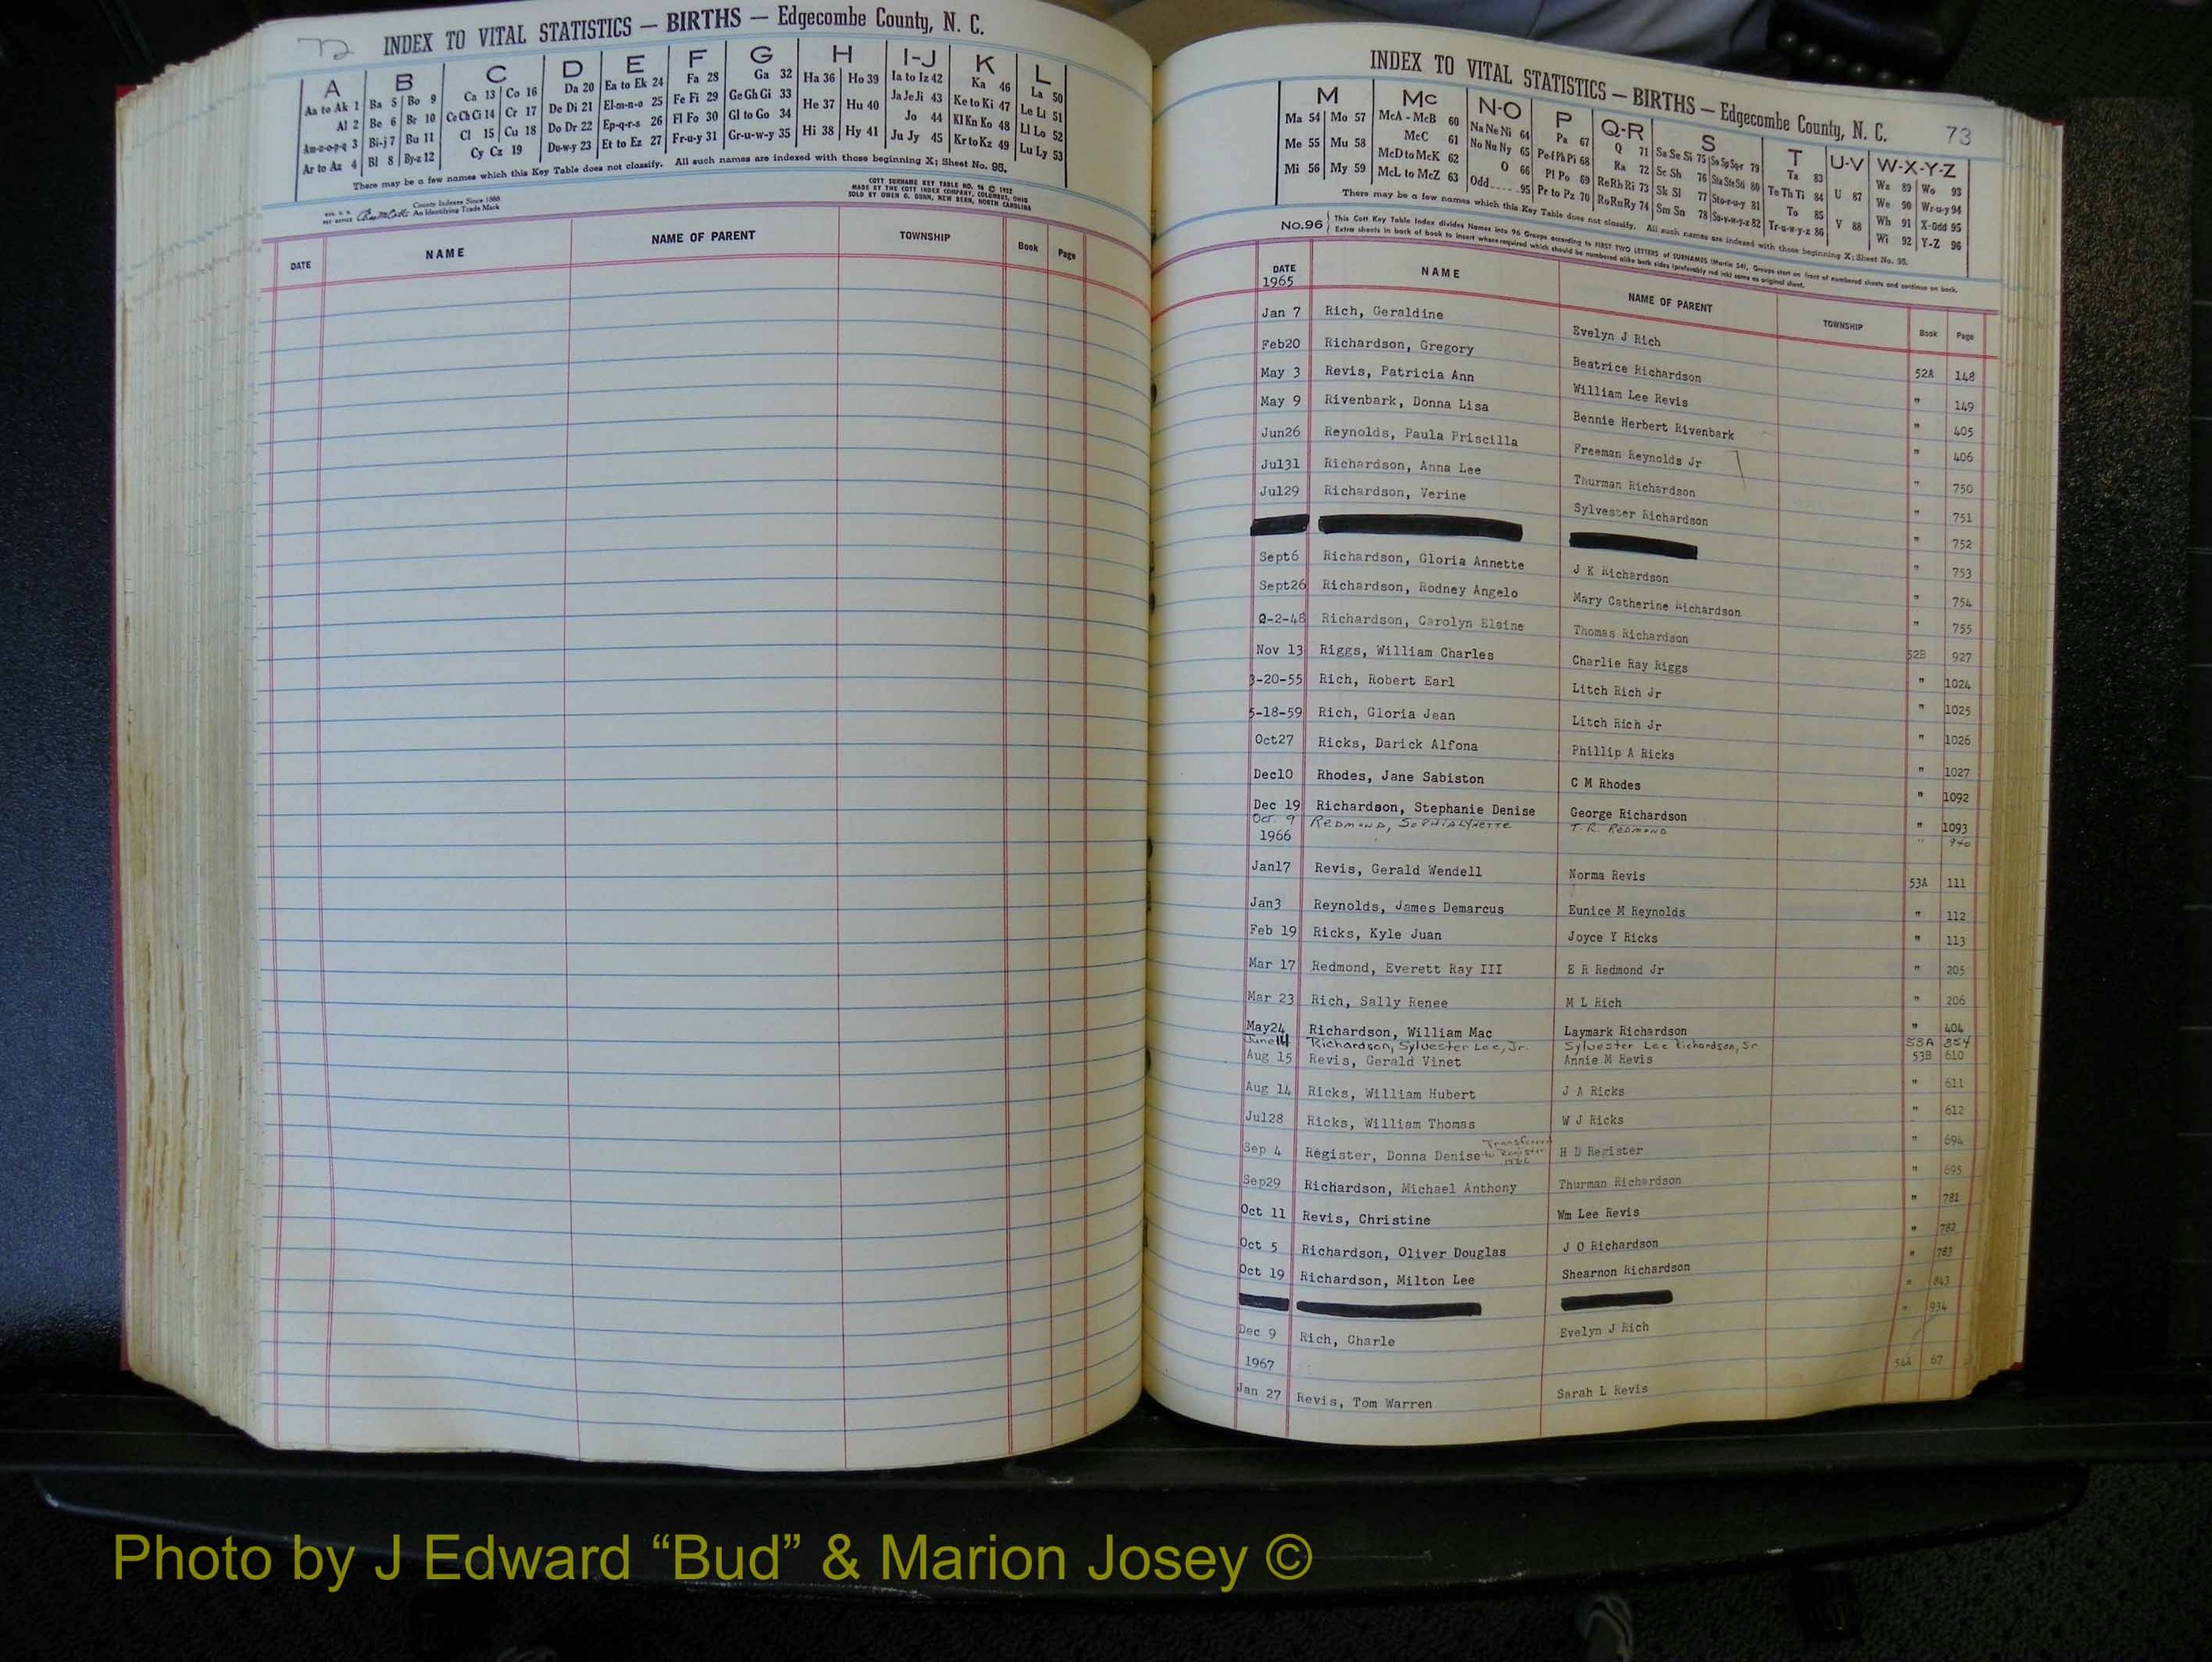 72
INDEX TO VITAL STATISTICS — BIRTHS — Edgecombe County, N. C.
A B C D E F G H I-J K L
Aa to Ak 1 Ba 5 Bo 9 Ca 13 Co 16 Da 20 Ea to Ek 24 Fa 28 Ga 32 Ha 36 Ho 39 Ia to Iz 42 Ka 46 La 50
Al 2 Be 6 Br 10 Ce Ch Ci 14 Cr 17 De Di 21 El-m-n-o 25 Fe Fi 29 Ge Gh Gi 33 He 37 Hu 40 Ja Je Ji 43 Ke to Ki 47 Le Li 51
Am-n-o-p-q 3 Bi-j 7 Bu 11 Cl 15 Cu 18 Do Dr 22 Ep-q-r-s 26 Fl Fo 30 Gl to Go 34 Hi 38 Hy 41 Jo 44 Kl Kn Ko 48 Ll Lo 52
Ar to Az 4 Bl 8 By-z 12 Cy Cz 19 Du-w-y 23 Et to Ez 27 Fr-u-y 31 Gr-u-w-y 35 Ju Jy 45 Kr to Kz 49 Lu Ly 53
There may be a few names which this Key Table does not classify. All such names are indexed with those beginning X; Sheet No. 95.
County Indexes Since 1888
An Identifying Trade Mark
COTT SURNAME KEY TABLE NO. 96 ©
MADE BY THE COTT INDEX COMPANY, COLUMBUS, OHIO
SOLD BY OWEN G. DUNN, NEW BERN, NORTH CAROLINA
DATE NAME NAME OF PARENT TOWNSHIP Book Page
INDEX TO VITAL STATISTICS — BIRTHS — Edgecombe County, N. C. 73
M Mc N-O P Q-R S T U-V W-X-Y-Z
Ma 54 Mo 57 McA - McB 60 Na Ne Ni 64 Pa 67 Q 71 Sa Se Si 75 So Sp Sq-r 79 Ta 83 U 87 Wa 89 Wo 93
Me 55 Mu 58 McC 61 No Nu Ny 65 Pe-f Ph Pi 68 Ra 72 Sc Sh 76 Sta Ste Sti 80 Te Th Ti 84 V 88 We 90 Wr-u-y 94
Mi 56 My 59 McD to McK 62 O 66 Pl Po 69 Re Rh Ri 73 Sk Sl 77 Sto-r-u-y 81 To 85 Wh 91 X-Odd 95
McL to McZ 63 Odd 95 Pr to Pz 70 Ro Ru Ry 74 Sm Sn 78 Su-v-w-y-z 82 Tr-u-w-y-z 86 Wi 92 Y-Z 96
There may be a few names which this Key Table does not classify. All such names are indexed with those beginning X; Sheet No. 95.
No. 96 This Cott Key Table Index divides Names into 96 Groups according to FIRST TWO LETTERS of SURNAMES (Martin 54). Groups start on front of numbered sheets and continue on back.
Extra sheets in back of book to insert where required which should be numbered alike both sides (preferably red ink) same as original sheet.
DATE NAME NAME OF PARENT TOWNSHIP Book Page
1965
Jan 7 Rich, Geraldine Evelyn J Rich 52A 148
Feb20 Richardson, Gregory Beatrice Richardson " 149
May 3 Revis, Patricia Ann William Lee Revis " 405
May 9 Rivenbark, Donna Lisa Bennie Herbert Rivenbark " 406
Jun26 Reynolds, Paula Priscilla Freeman Reynolds Jr " 750
Jul31 Richardson, Anna Lee Thurman Richardson " 751
Jul29 Richardson, Verine Sylvester Richardson " 752
" 753
Sept6 Richardson, Gloria Annette J K Richardson " 754
Sept26 Richardson, Rodney Angelo Mary Catherine Richardson " 755
-2-48 Richardson, Carolyn Elaine Thomas Richardson 52B 927
Nov 13 Riggs, William Charles Charlie Ray Riggs " 1024
3-20-55 Rich, Robert Earl Litch Rich Jr " 1025
5-18-59 Rich, Gloria Jean Litch Rich Jr " 1026
Oct27 Ricks, Darick Alfona Phillip A Ricks " 1027
Dec10 Rhodes, Jane Sabiston C M Rhodes " 1092
Dec 19 Richardson, Stephanie Denise George Richardson " 1093
Oct. 9 Redmond, Sophia Lynette T. R. Redmond " 940
1966
Jan17 Revis, Gerald Wendell Norma Revis 53A 111
Jan3 Reynolds, James Demarcus Eunice M Reynolds " 112
Feb 19 Ricks, Kyle Juan Joyce Y Ricks " 113
Mar 17 Redmond, Everett Ray III E R Redmond Jr " 205
Mar 23 Rich, Sally Renee M L Rich " 206
May24 Richardson, William Mac Laymark Richardson " 404
June 14 Richardson, Sylvester Lee, Jr. Sylvester Lee Richardson, Sr 53A 354
Aug 15 Revis, Gerald Vinet Annie M Revis 53B 610
Aug 14 Ricks, William Hubert J A Ricks " 611
Jul28 Ricks, William Thomas W J Ricks " 612
Sep 4 Register, Donna Denise to Register H D Register " 694
Sep29 Richardson, Michael Anthony Thurman Richardson " 695
Oct 11 Revis, Christine Wm Lee Revis " 781
Oct 5 Richardson, Oliver Douglas J O Richardson " 782
Oct 19 Richardson, Milton Lee Shearnon Richardson " 783
" 843
Dec 9 Rich, Charle Evelyn J Rich " 934
1967
Jan 27 Revis, Tom Warren Sarah L Revis 54A 67
Photo by J Edward “Bud” & Marion Josey ©